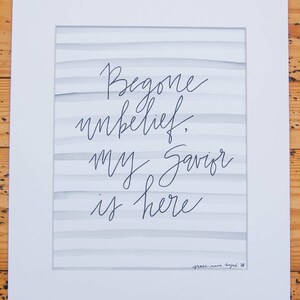 Begone
unbelief,
my Savior
is here